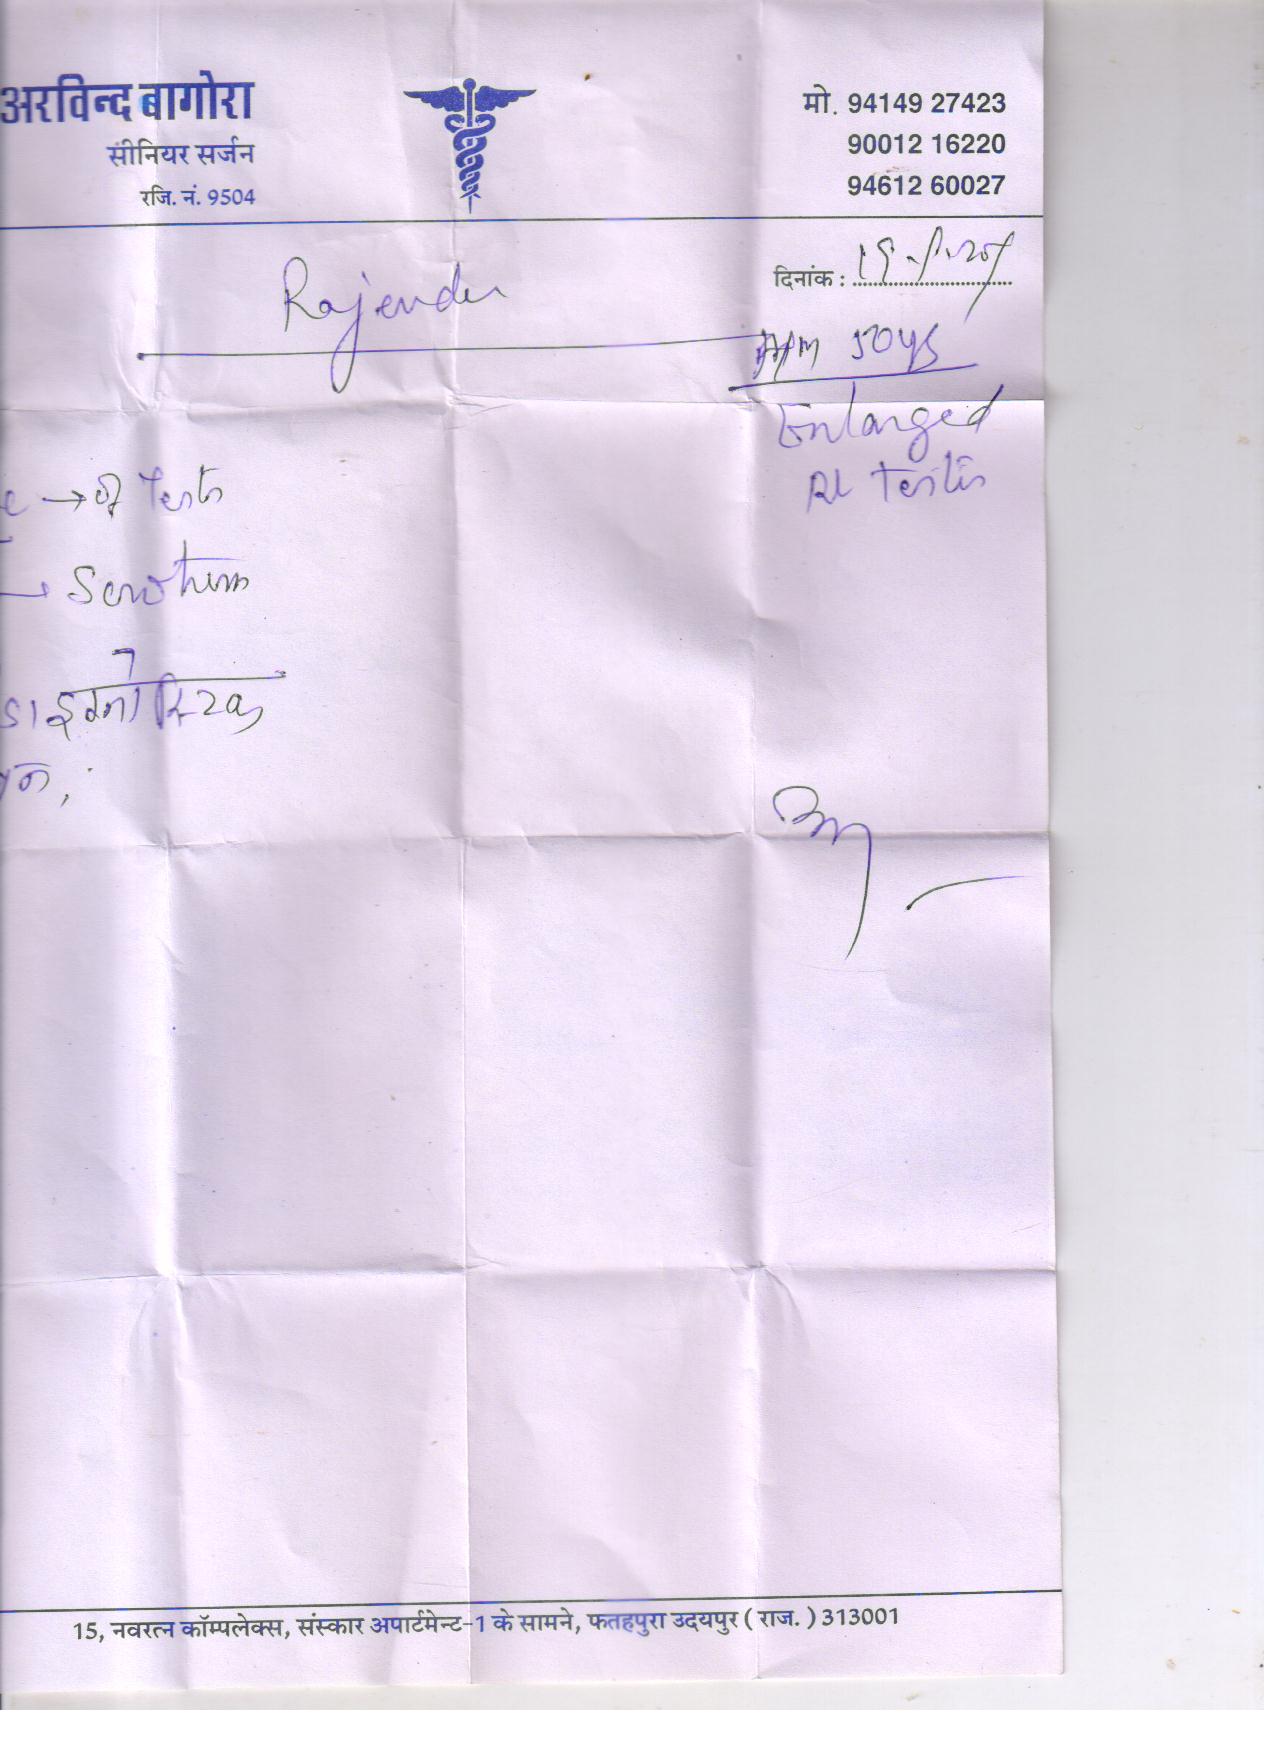 अरविन्द बागोरा
सीनियर सर्जन
रजि. नं. 9504
मो. 94149 27423
90012 16220
94612 60027
दिनांक :
Rajender
50ys
Enlarged
Rt testis
→ of Testis
→ Scrotum
15, नवरत्न कॉम्पलेक्स, संस्कार अपार्टमेन्ट-1 के सामने, फतहपुरा उदयपुर ( राज. ) 313001